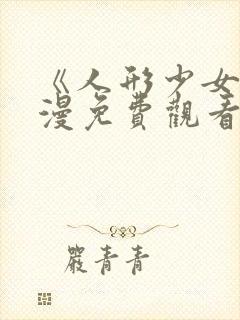 《人形少女
漫免費觀看
嚴青青